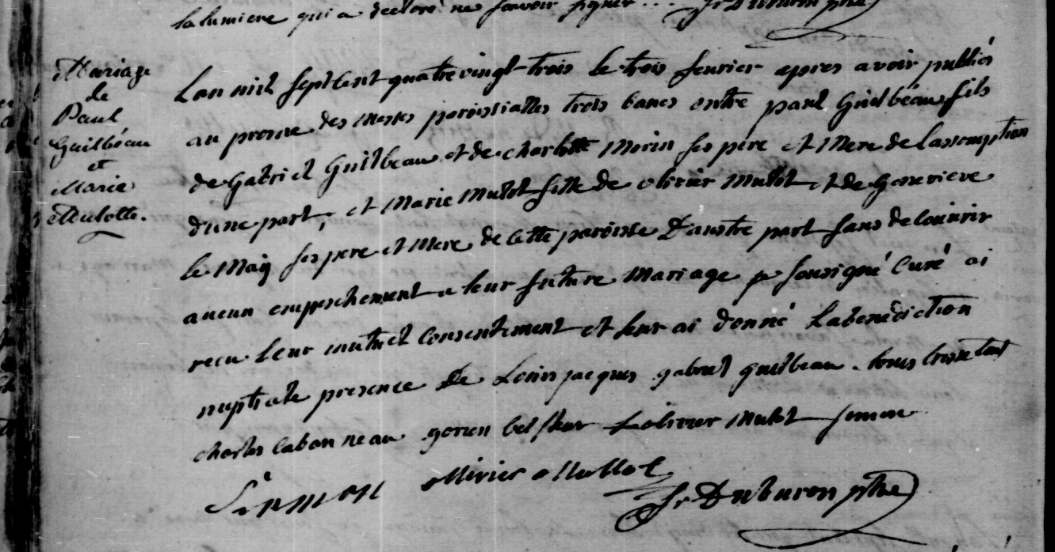 la lumiere qui a declaré ne savoir signer . . . fr Duburon ptre
Mariage
de
Paul
Guilbéau
et
Marie
Mulotte.
Lan mil sept cent quatre vingt-trois le trois fevrier apres avoir publiés
au prosne des messes paroissialles trois bancs entre paul Guilbéau fils
de Gabriel Guilbeau et de charlotte Morin ses pere et Mere de lassomption
dune part, et Marie Mulot fille de olivier Mulot et de Genevieve
le Maÿ ses pere et Mere de cette paroisse Dautre part sans decouvrir
aucun empeschement a leur future Mariage je sousigné Curé ai
recu leur mutuel Consentement et leur ai donné Labenediction
nuptiale presence de Louis jacques gabriel guilbeau .
charles cabonneau belfleur olivier Mulot simon
Simon olivier Mullot
fr Duburon ptre